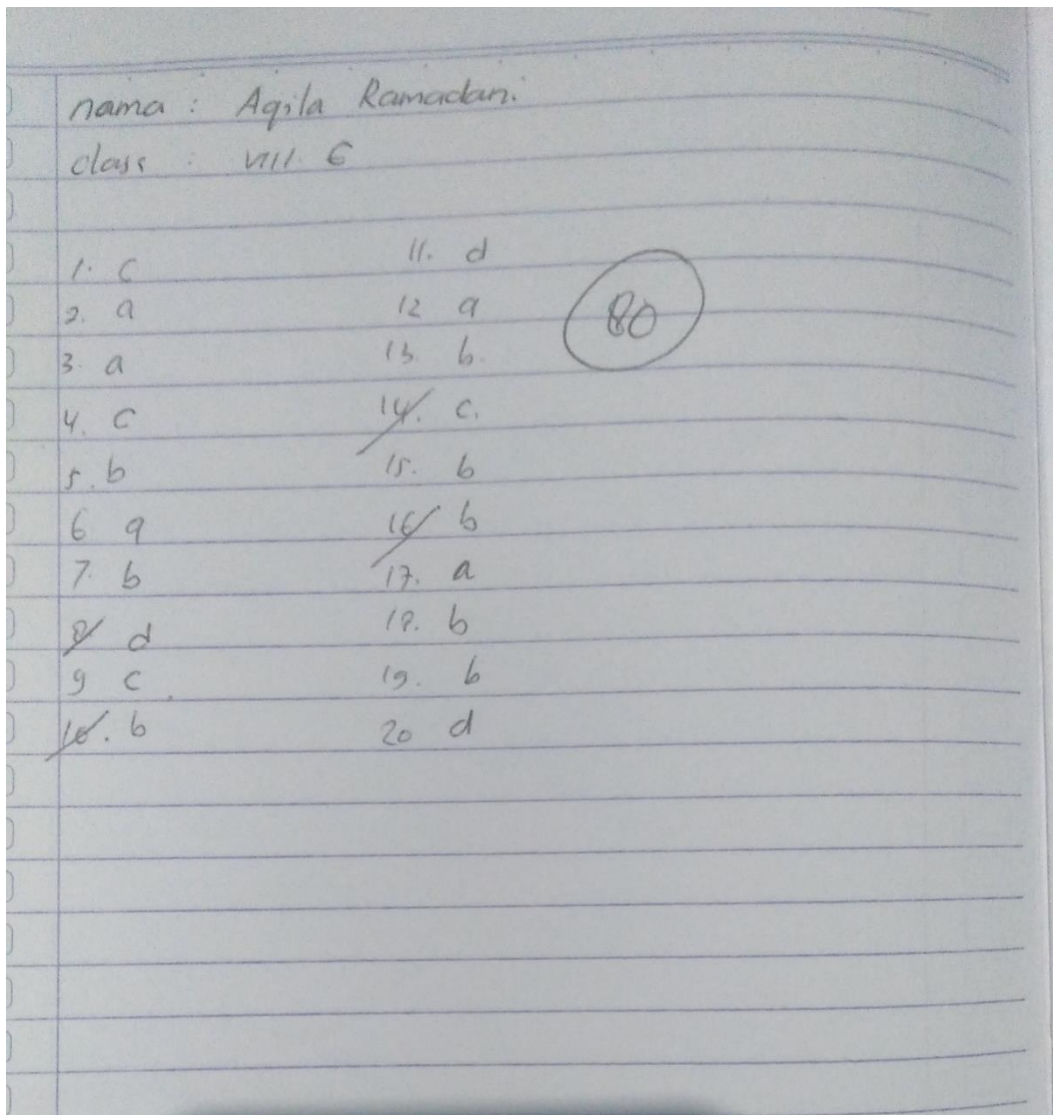 nama : Aqila Ramadani
class : VIII. 6
1. c
2. a
3. a
4. c
5. b
6 a
7. b
8 d
9 c
10. b
11. d
12 a
13. b.
14. c.
15. b
16 b
17. a
18. b
19. b
20 d
80